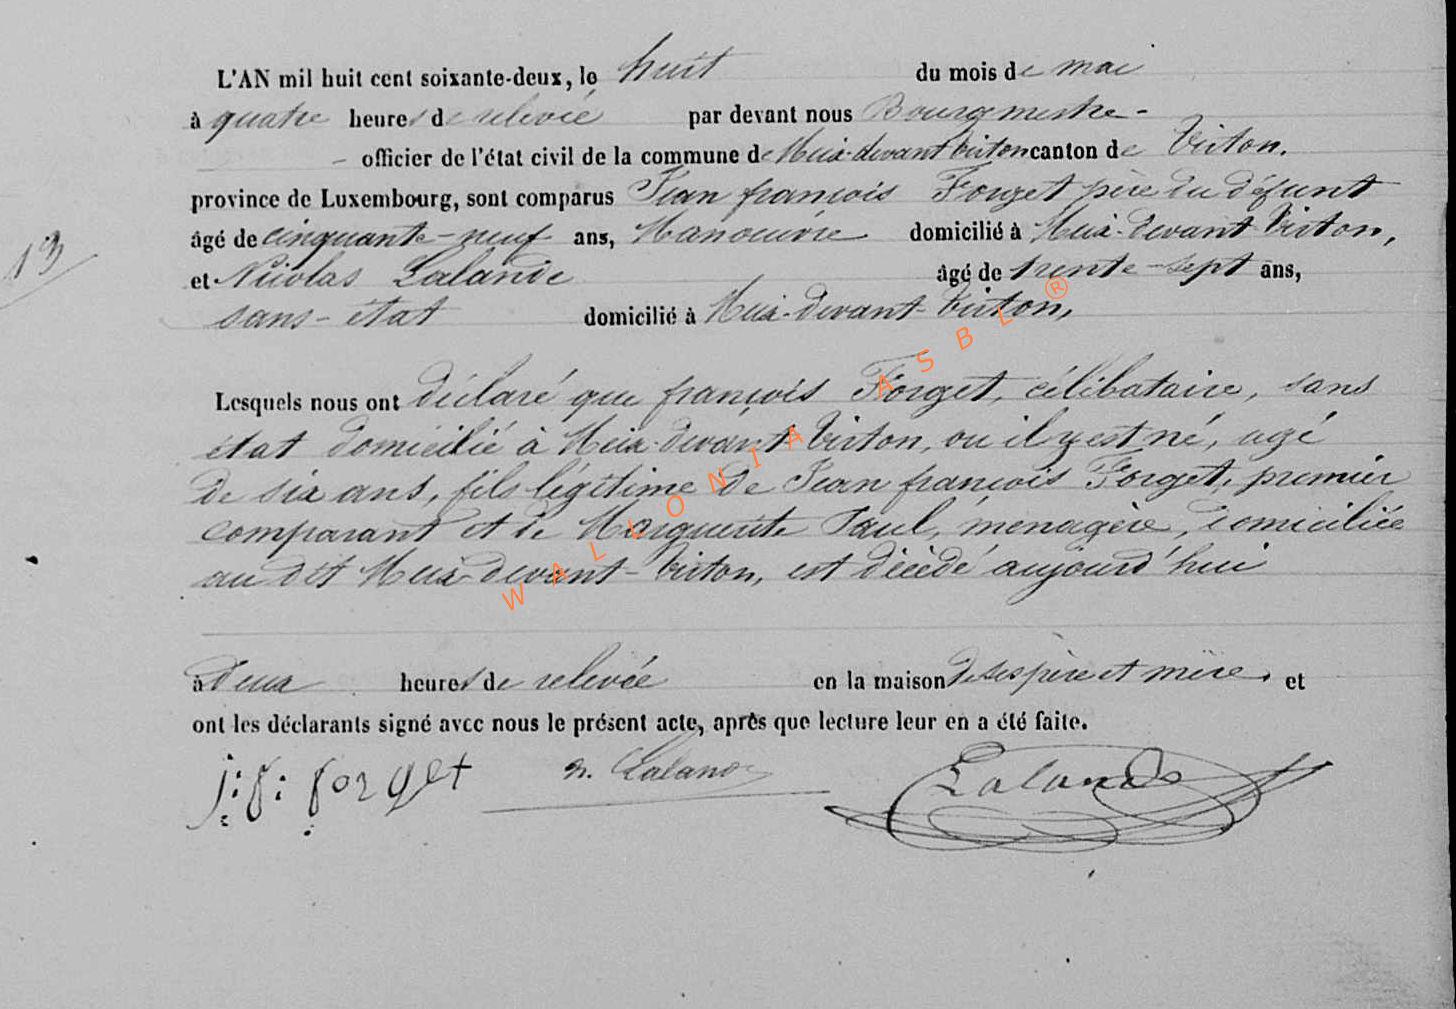 L'AN mil huit cent soixante-deux, le huit du mois de mai
à quatre heures de relevée par devant nous Bourgmestre -
- officier de l'état civil de la commune de Meix-devant Virton canton de Virton.
province de Luxembourg, sont comparus Jean françois Forget père du défunt
âgé de cinquante-neuf ans, Manoeuvre domicilié à Meix-devant Virton,
13
et Nicolas Lalande âgé de trente-sept ans,
sans-état domicilié à Meix-devant-Virton,
Lesquels nous ont déclaré que françois Forget, célibataire, sans
état domicilié à Meix-devant Virton, ou il y est né, agé
de six ans, fils légitime de Jean françois Forget, premier
comparant et de Marguerite Paul, menagère, domiciliée
au dit Meix-devant-Virton, est décèdé aujourd'hui
à deux heures de relevée en la maison de ses père et mère. et
ont les déclarants signé avec nous le présent acte, après que lecture leur en a été faite.
j: f: forget n. Lalande Lalande
WALLONIA ASBL ®